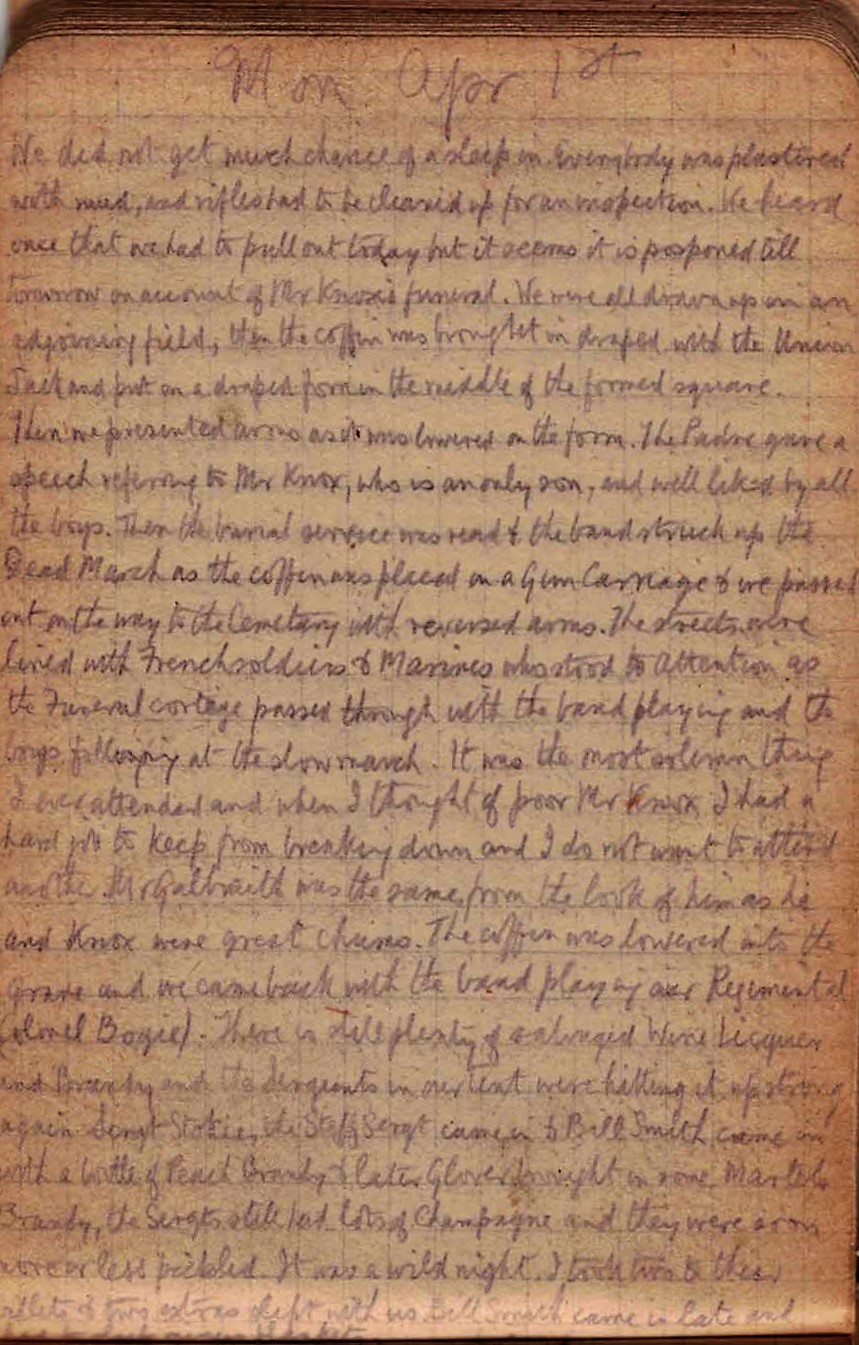 Mon Apr 1st
We did not get much chance of a sleep in. Everybody was plastered
with mud, and rifles had to be cleaned up for an inspection. We heard
once that we had to pull out today but it seems it is posponed till
tomorrow on account of Mr Knox's funeral. We were all drawn up in an
adjoining field, then the coffin was brought in draped with the Union
Jack and put on a draped form in the middle of the formed square.
Then we presented arms as it was lowered on the form. The Padre gave a
speech referring to Mr Knox, who is an only son, and well liked by all
the boys. Then the burial service was read & the band struck up the
Dead March as the coffin was placed on a Gun Carriage & we passed
out on the way to the Cemetary with reversed arms. The streets were
lined with French soldiers & Marines who stood to attention as
the Funeral cortege passed through with the band playing and the
boys following at the slow march. It was the most solemn thing
I ever attended and when I thought of poor Mr Knox I had a
hard job to keep from breaking down and I do not want to attend
another Mr Galbraith was the same from the look of him as he
and Knox were great chums. The coffin was lowered into the
grave and we came back with the band playing our Regimental
(Colonel Bogie). There is still plenty of salvaged Wine Licquer
and Brandy and the Sergeants in our tent were hitting it up strong
again Sergt Stokie, the Staff Sergt came in & Bill Smith came in
with a bottle of Peach Brandy & later Glover brought in some Martels
Brandy, the Sergts still had lots of Champagne and they were soon
more or less pickled. It was a wild night. I took two to their
billets & two extras slept with us. Bill Smith came in late and